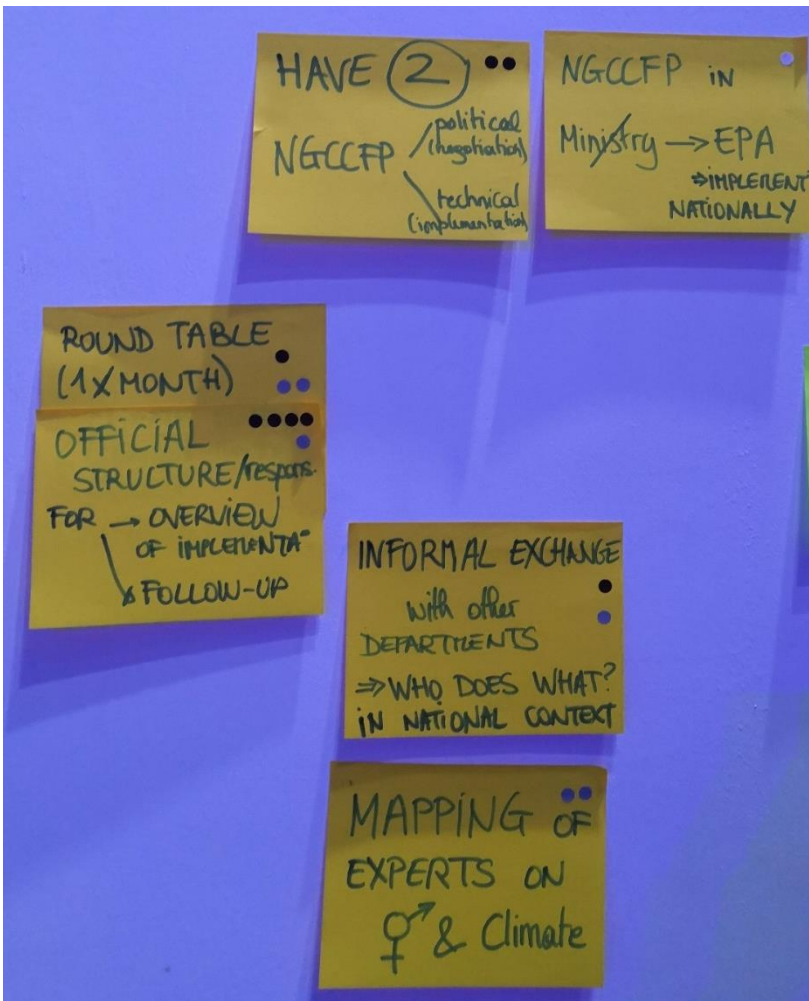 HAVE 2
NGCCFP
political
(negotiation)
technical
(implementation)
NGCCFP in
Ministry → EPA
⇒ IMPLEMENT
NATIONALLY
ROUND TABLE
(1X/MONTH)
OFFICIAL
STRUCTURE/respons.
FOR → OVERVIEW
OF IMPLEMENTA-
FOLLOW-UP
INFORMAL EXCHANGE
with other
DEPARTMENTS
⇒ WHO DOES WHAT?
IN NATIONAL CONTEXT
MAPPING OF
EXPERTS ON
⚥ & Climate